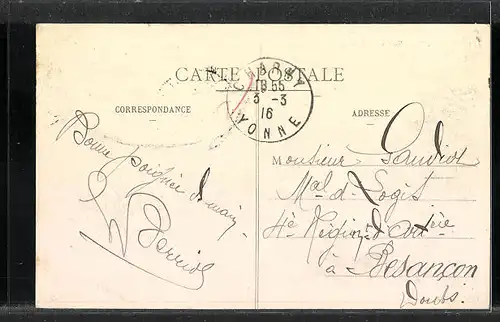 CARTE POSTALE
CHARNY
18 55
3 -3
16
YONNE
CORRESPONDANCE
ADRESSE
Bonne poignée d main
Monsieur Gaudiot
Mal d. Logis
4e Régim. d'Artrie
à Besançon
Doubs.